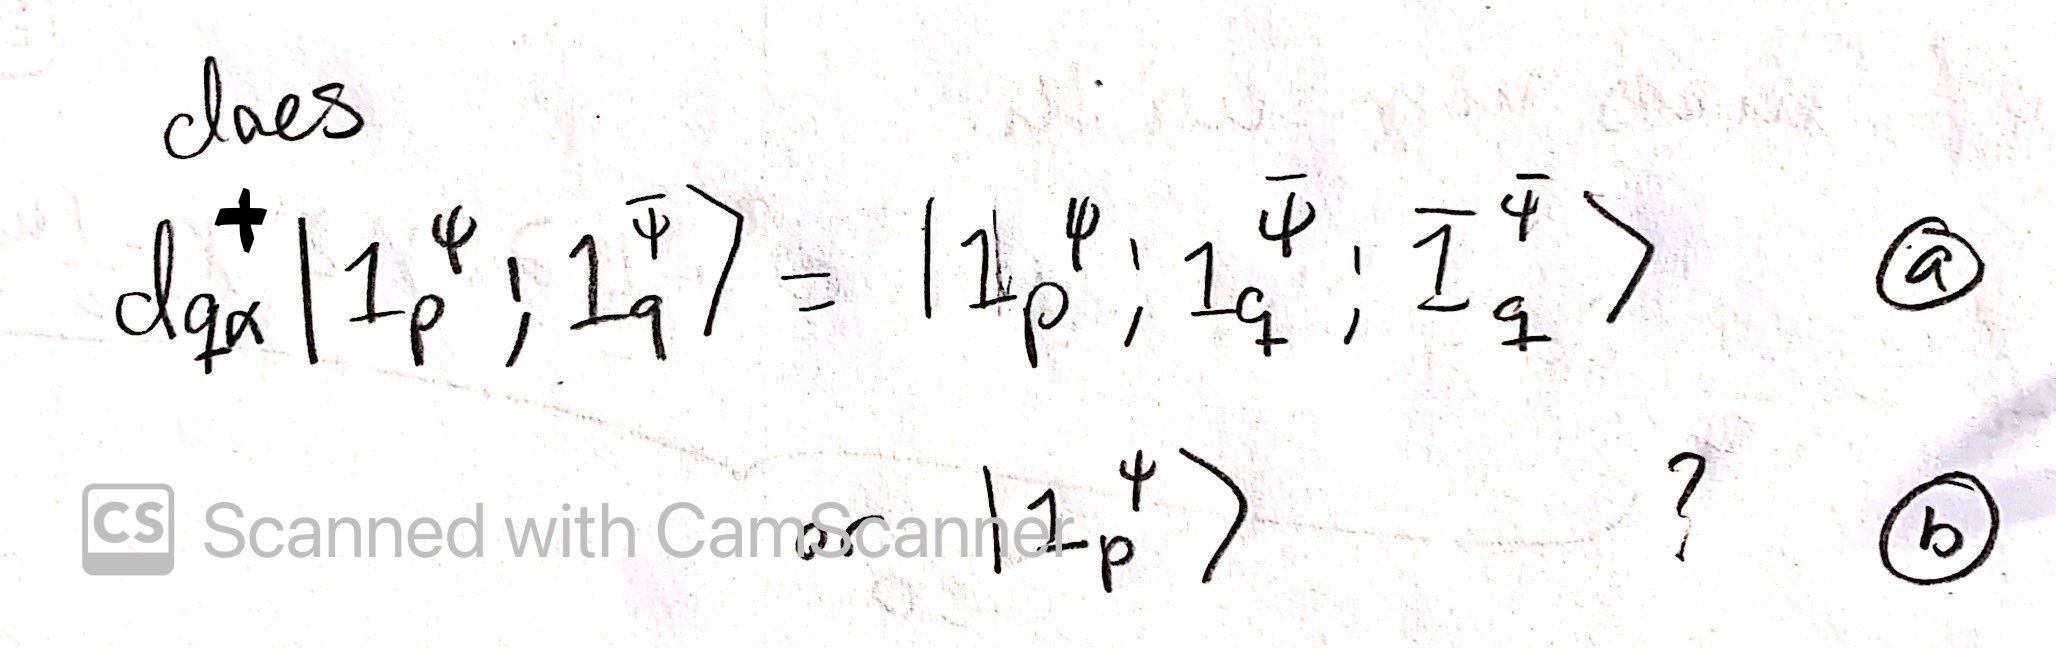 does
d_{qα}^+ |1_p^ψ ; 1_q^{ψ̄}⟩ = |1_p^ψ ; 1_q^{ψ̄} ; 1̄_q^{ψ̄}⟩ ⓐ
or |1_p^ψ⟩ ? ⓑ
CS Scanned with CamScanner